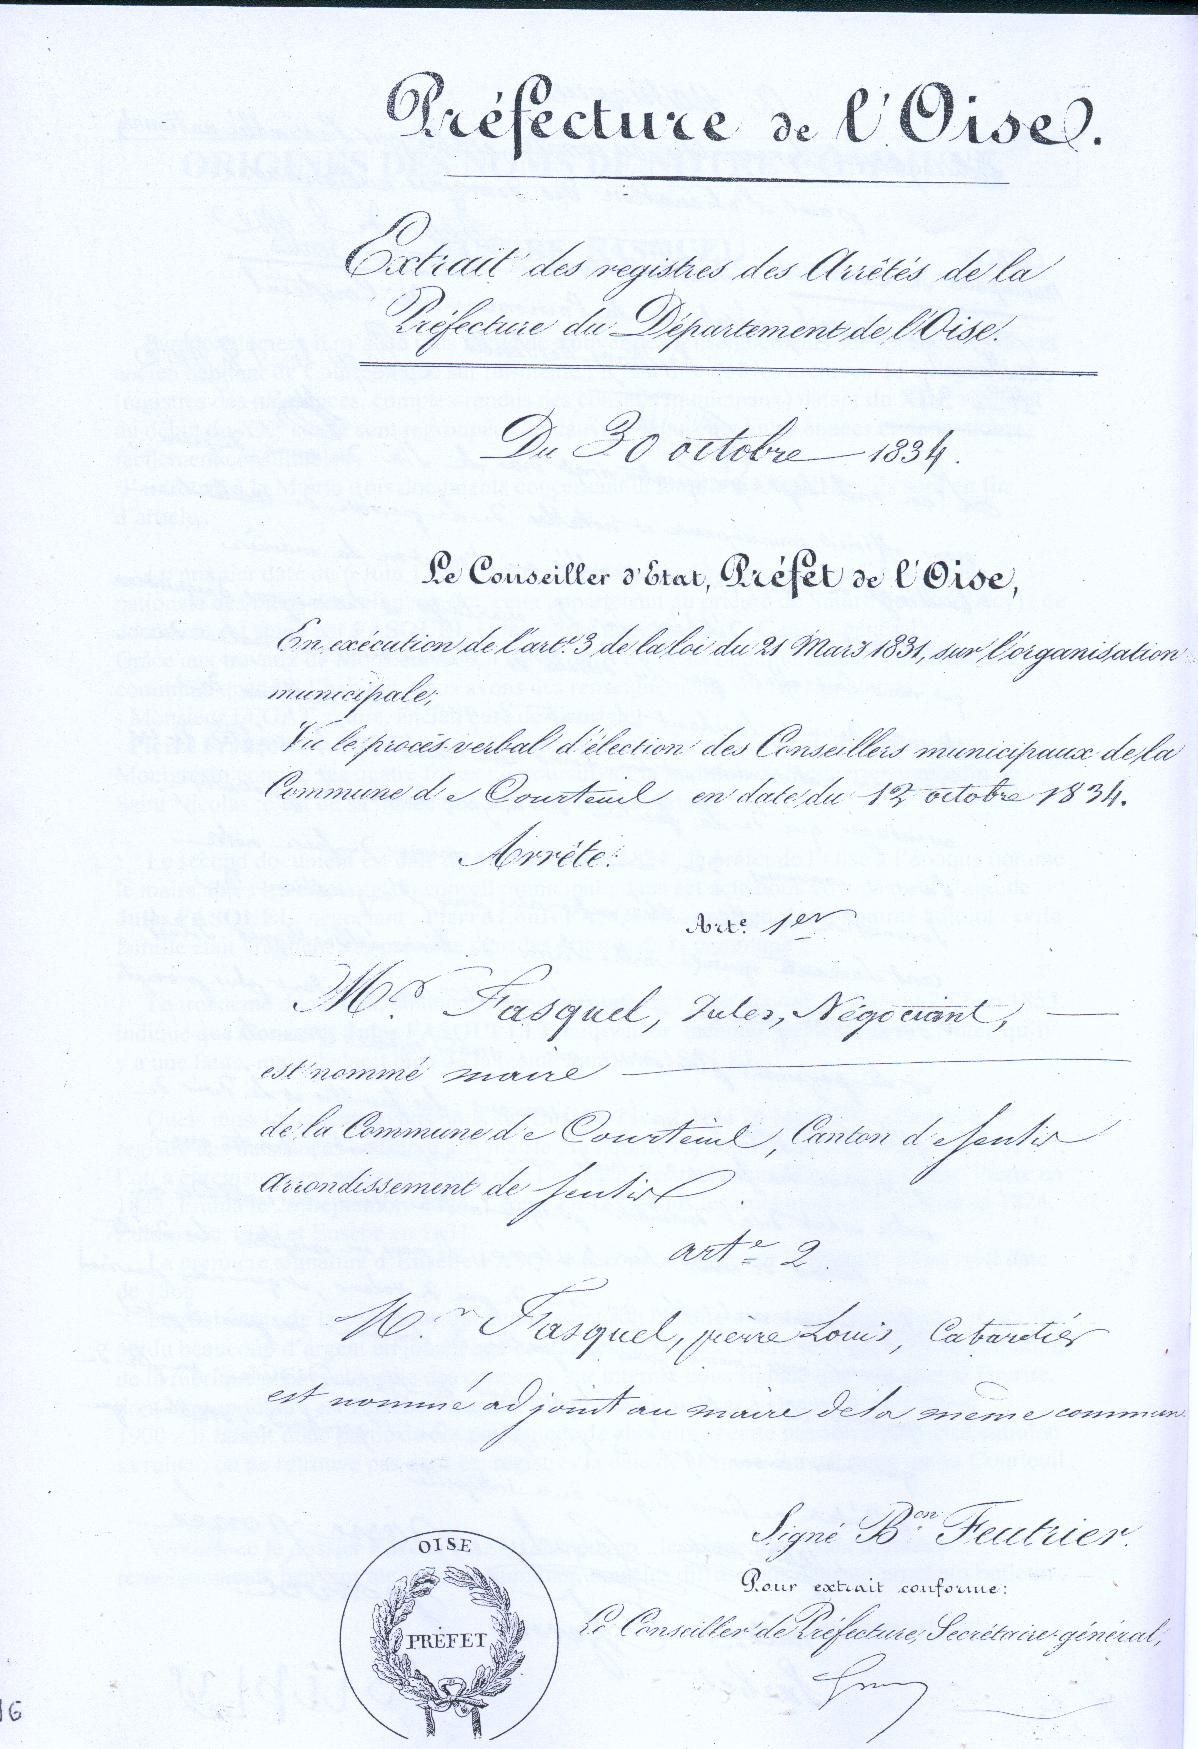 Préfecture de l'Oise.
Extrait des registres des Arrêtés de la
Préfecture du Département de l'Oise.
Du 30 octobre 1834.
Le Conseiller d'Etat, Préfet de l'Oise,
En exécution de l'art.e 3 de la loi du 21 Mars 1831, sur l'organisation
municipale;
Vu le procès-verbal d'élection des Conseillers municipaux de la
Commune de Courteuil en date du 12 octobre 1834.
Arrête:
Art.e 1er
Mr. Fasquel, Jules, Négociant,
est nommé maire
de la Commune de Courteuil, Canton de Senlis
Arrondissement de Senlis.
art.e 2.
Mr. Fasquel, pierre Louis, Cabaretier
est nommé adjoint au maire de la même commun
Signé Bon. Feutrier.
Pour extrait conforme:
Le Conseiller de Préfecture, Secrétaire-général,
OISE
PRÉFET
16